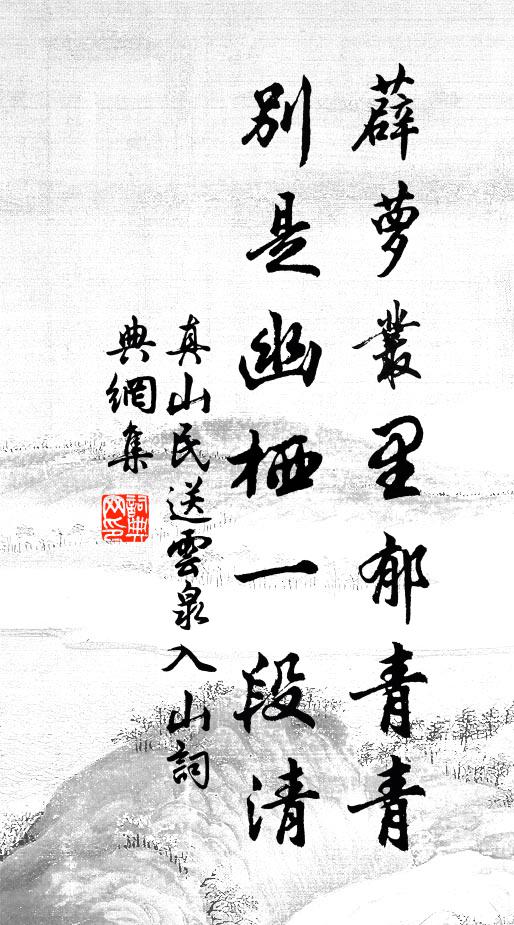 薜萝叢里郁青青
別是幽栖一段清
真山民送雲泉入山詞
典網集
詞典网印